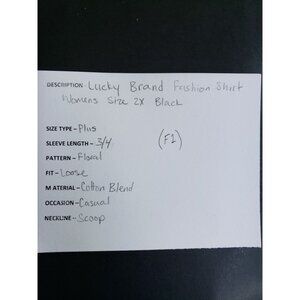 DESCRIPTION - Lucky Brand Fashion Shirt
Womens Size 2X Black
SIZE TYPE - Plus
SLEEVE LENGTH - 3/4
(F1)
PATTERN - Floral
FIT - Loose
MATERIAL - Cotton Blend
OCCASION - Casual
NECKLINE - Scoop